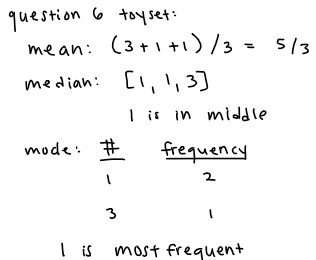 question 6 toyset:
mean: (3+1+1)/3 = 5/3
median: [1, 1, 3]
1 is in middle
mode: # frequency
1 2
3 1
1 is most frequent